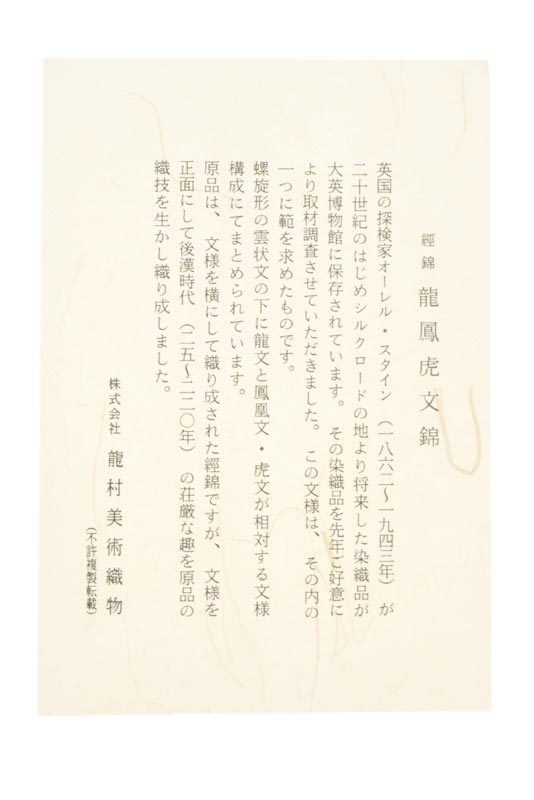 經錦 龍鳳虎文錦
英国の探検家オーレル・スタイン（一八六二〜一九四三年）が
二十世紀のはじめシルクロードの地より将来した染織品が
大英博物館に保存されています。その染織品を先年ご好意に
より取材調査させていただきました。この文様は、その内の
一つに範を求めたものです。
螺旋形の雲状文の下に龍文と鳳凰文・虎文が相対する文様
構成にてまとめられています。
原品は、文様を横にして織り成された經錦ですが、文様を
正面にして後漢時代（二五〜二二〇年）の荘厳な趣を原品の
織技を生かし織り成しました。
株式会社 龍村美術織物
（不許複製転載）